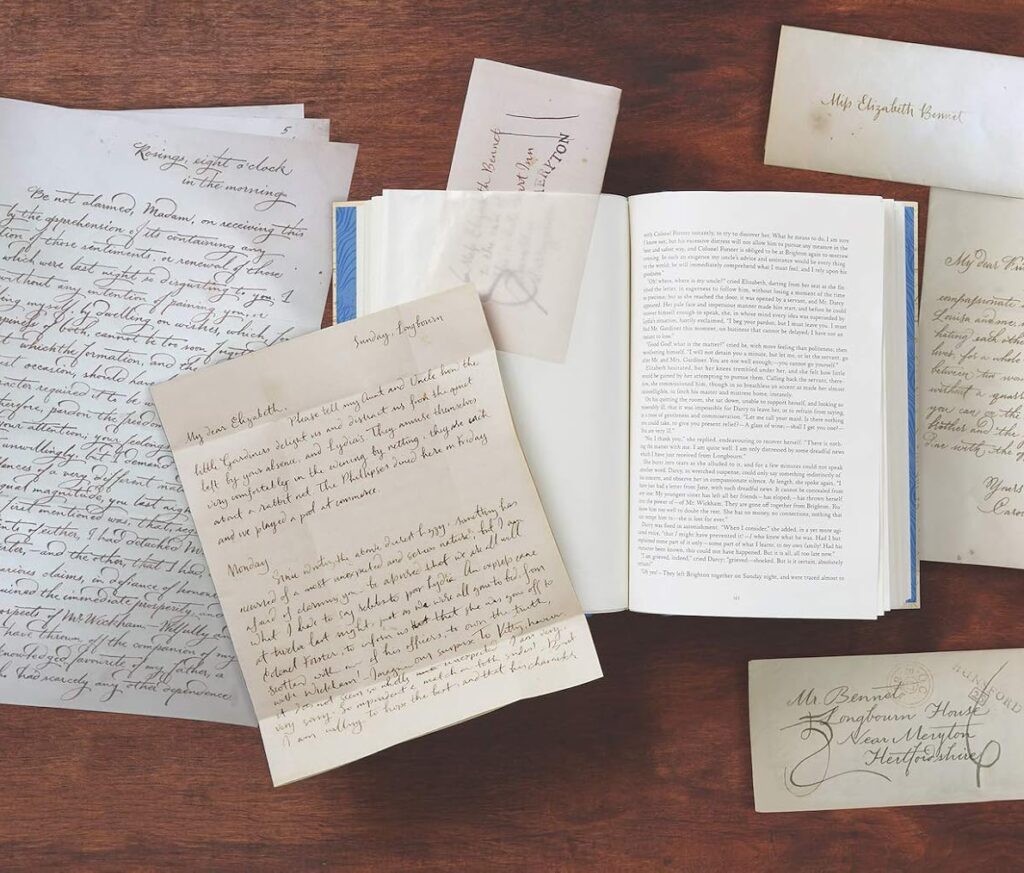 5
Rosings, eight o'clock
in the morning
Be not alarmed, Madam, on receiving this
by the apprehension of its containing any
tion of those sentiments, or renewal of those
which were last night so disgusting to you. I
without any intention of paining you, or
by dwelling on wishes, which, for
ppiness of both, cannot be too soon
which the formation, and the
st occasion, should have
racter required it to be
therefore, pardon the freedom
your attention; your feelings
unwillingly, but I demand
ences of a very different
magnitude, you last night
first mentioned was, that,
of either, I had detached Mr
and the other, that I had,
various claims, in defiance of honour
ruined the immediate prosperity, and
prospects of Mr. Wickham.—Wilfully
have thrown off the companion of my
nowledged favourite of my father, a
had scarcely any other dependence
Sunday, Longbourn
My dear Elizabeth,
Please tell my Aunt and Uncle how the
little Gardiners delight us and distract us from the quiet
left by your absence, and Lydia's. They amuse themselves
very comfortably in the evening by netting; they are
about a rabbit net. The Philipses dined here on Friday
and we played a pool at commerce.
Monday
Since writing the above, dearest Lizzy, something has
occurred of a most unexpected and serious nature; but I am
afraid of alarming you—be assured that we are all well.
What I have to say relates to poor Lydia. An express came
at twelve last night, just as we were all gone to bed, from
Colonel Forster, to inform us that she was gone off to
Scotland with one of his officers; to own the truth,
with Wickham!—Imagine our surprise. To Kitty, however,
it does not seem so wholly unexpected. I am very,
very sorry. So imprudent a match on both sides!—But
I am willing to hope the best, and that his character
th Bennet
Inn
MERYTON
with Colonel Forster instantly, to try to discover her. What he means to do, I am sure
I know not; but his excessive distress will not allow him to pursue any measure in the
best and safest way, and Colonel Forster is obliged to be at Brighton again to-morrow
evening. In such an exigence my uncle's advice and assistance would be every thing
in the world; he will immediately comprehend what I must feel, and I rely upon his
goodness."
"Oh! where, where is my uncle?" cried Elizabeth, darting from her seat as she fin
ished the letter, in eagerness to follow him, without losing a moment of the time
so precious; but as she reached the door, it was opened by a servant, and Mr. Darcy
appeared. Her pale face and impetuous manner made him start, and before he could
recover himself enough to speak, she, in whose mind every idea was superseded by
Lydia's situation, hastily exclaimed, "I beg your pardon, but I must leave you. I must
find Mr. Gardiner this moment, on business that cannot be delayed; I have not an
instant to lose."
"Good God! what is the matter?" cried he, with more feeling than politeness; then
recollecting himself, "I will not detain you a minute, but let me, or let the servant, go
after Mr. and Mrs. Gardiner. You are not well enough;—you cannot go yourself."
Elizabeth hesitated, but her knees trembled under her, and she felt how little
would be gained by her attempting to pursue them. Calling back the servant, there-
fore, she commissioned him, though in so breathless an accent as made her almost
unintelligible, to fetch his master and mistress home, instantly.
On his quitting the room, she sat down, unable to support herself, and looking so
miserably ill, that it was impossible for Darcy to leave her, or to refrain from saying,
in a tone of gentleness and commiseration, "Let me call your maid. Is there nothing
you could take, to give you present relief?—A glass of wine;—shall I get you one?—
You are very ill."
"No, I thank you;" she replied, endeavouring to recover herself. "There is noth-
ing the matter with me. I am quite well. I am only distressed by some dreadful news
which I have just received from Longbourn."
She burst into tears as she alluded to it, and for a few minutes could not speak
another word. Darcy, in wretched suspense, could only say something indistinctly
of his concern, and observe her in compassionate silence. At length, she spoke again. "I
have just had a letter from Jane, with such dreadful news. It cannot be concealed from
any one. My youngest sister has left all her friends—has eloped;—has thrown herself
into the power of—of Mr. Wickham. They are gone off together from Brighton. You
know him too well to doubt the rest. She has no money, no connections, nothing that
can tempt him to—she is lost for ever."
Darcy was fixed in astonishment. "When I consider," she added, in a yet more agi-
tated voice, "that I might have prevented it!—I who knew what he was. Had I but
explained some part of it only—some part of what I learnt, to my own family! Had his
character been known, this could not have happened. But it is all, all too late now."
"I am grieved, indeed," cried Darcy; "grieved—shocked. But is it certain, absolutely
certain?"
"Oh yes!—They left Brighton together on Sunday night, and were traced almost to
Miss Elizabeth Bennet
My dear
compassionate
Louisa and me,
hating each other
lives, for a whole
between two wo
without a quarr
you can on the
Brother and the
dine with the of
Yours
Caro
Mr. Bennet
Longbourn House
Near Meryton
Hertfordshire
HUNSFORD